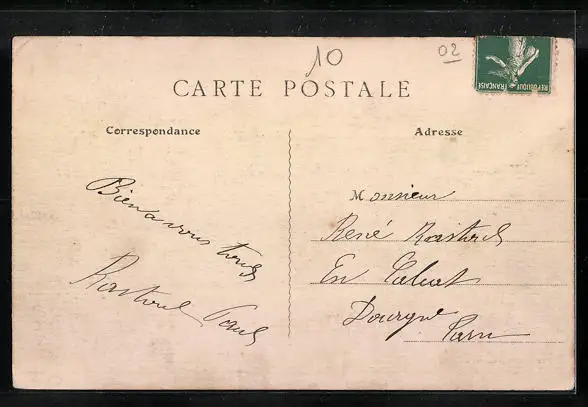 10
02
CARTE POSTALE
Correspondance
Adresse
REPUBLIQUE FRANÇAISE
Bien à vous tous
Rastoul Paul
Monsieur
René Rastoul
En Calcat
Dourgne
Tarn